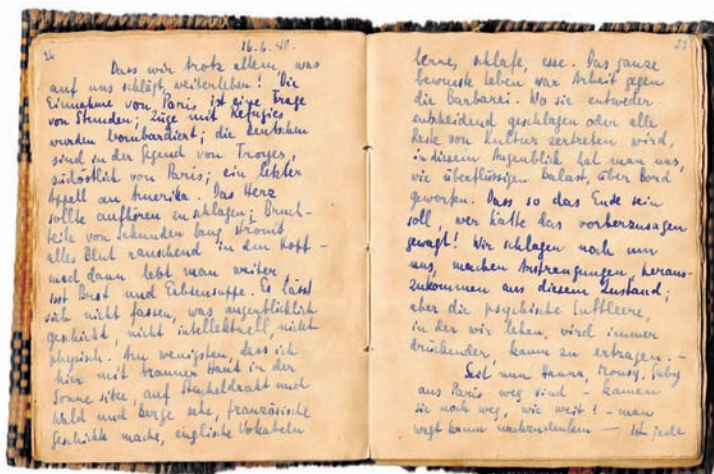 26
16.6.40.
Dass wir trotz allem, was
auf uns schlägt, weiterleben! Die
Einnahme von Paris ist eine Frage
von Stunden; Züge mit Refugies
wurden bombardiert; die Deutschen
sind in der Gegend von Troyes,
südöstlich von Paris; ein letzter
Appell an Amerika. Das Herz
sollte aufhören zu schlagen; Bruch-
teile von Sekunden lang strömt
alles Blut rauschend in den Kopf –
und dann lebt man weiter
isst Brot und Erbsensuppe. Es lässt
sich nicht fassen, was augenblicklich
geschieht, nicht intellektuell, nicht
physisch. Am wenigsten, dass ich
hier mit brauner Haut in der
Sonne sitze, auf Stacheldraht und
Wald und Berge sehe, französische
Geschichte mache, englische Vokabeln
27
lerne, schlafe, esse. Das ganze
bewusste Leben war Arbeit gegen
die Barbarei. Wo sie entweder
entscheidend geschlagen oder alle
Reste von Kultur zertreten wird,
in diesem Augenblick hat man uns,
wie überflüssigen Balast, über Bord
geworfen. Dass so das Ende sein
soll, wer hätte das vorherzusagen
gewagt! Wir schlagen noch um
uns, machen Anstrengungen, heraus-
zukommen aus diesem Zustand;
aber die psychische Luftleere,
in der wir leben, wird immer
drückender, kaum zu ertragen. –
Seit nun Hanna, Mousy, Gaby
aus Paris weg sind – kamen
sie noch weg, wie weit! – man
wagt kaum nachzudenken – ist jede